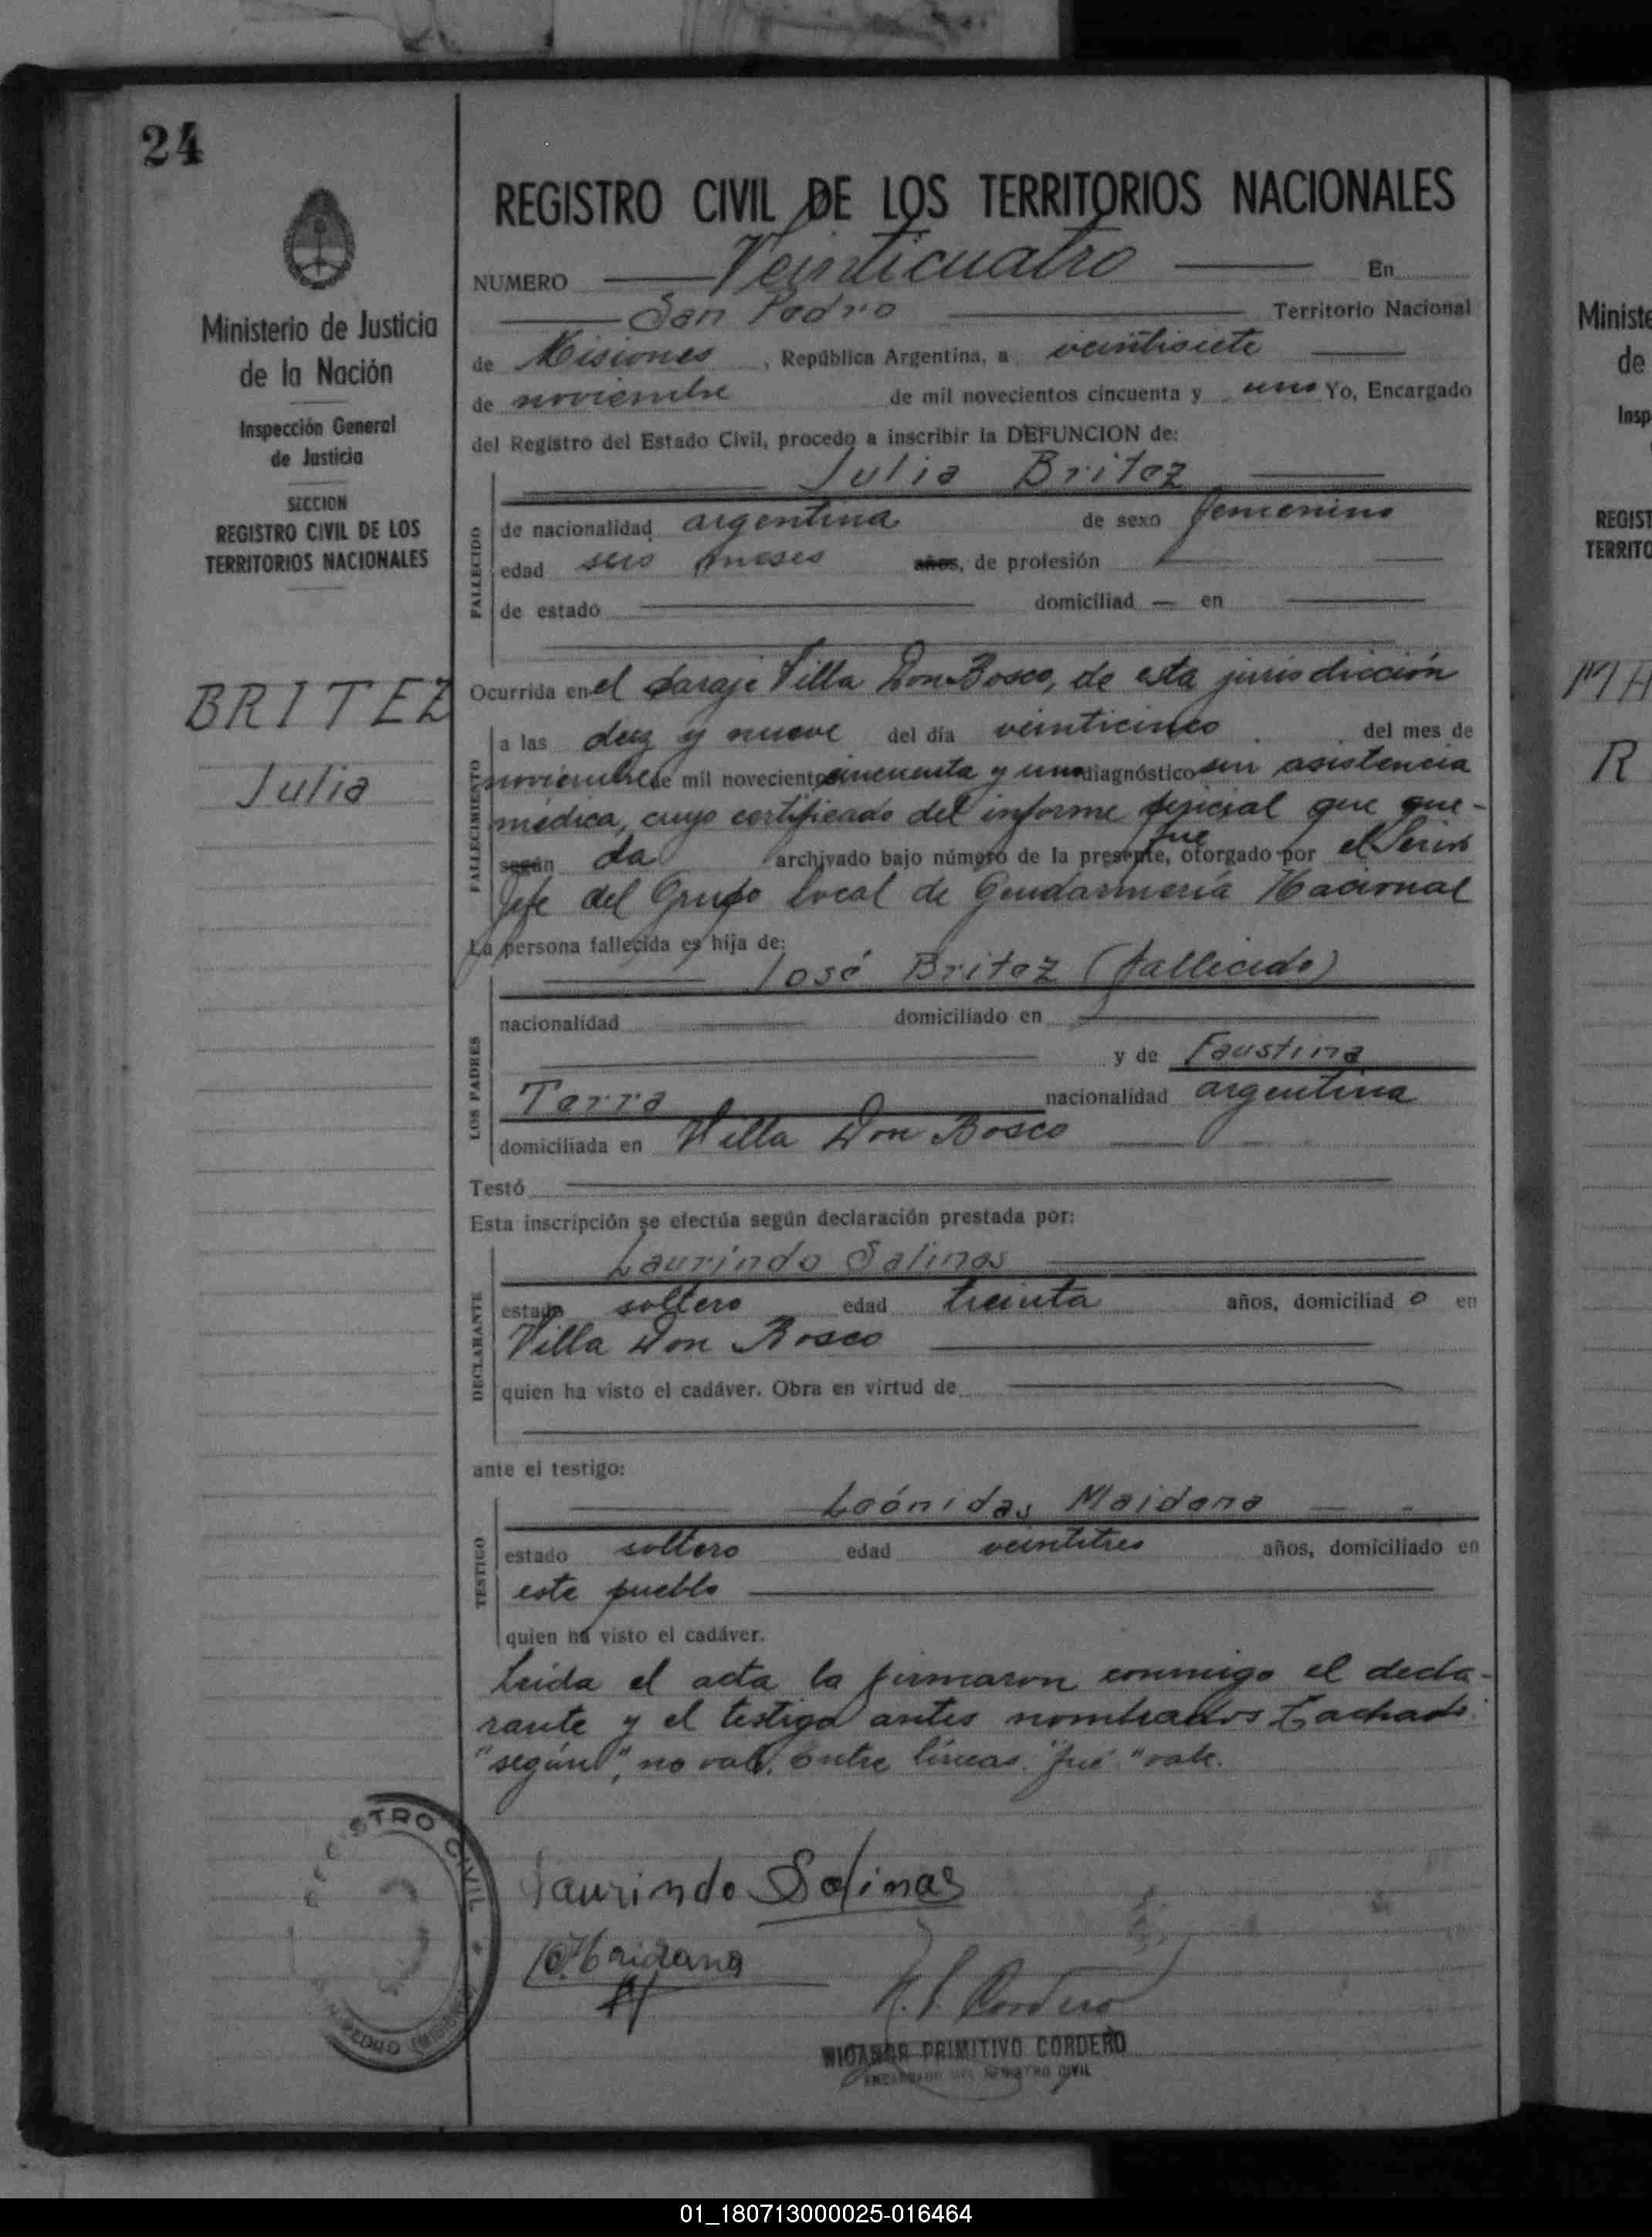 24
Ministerio de Justicia
de la Nación
Inspección General
de Justicia
SECCION
REGISTRO CIVIL DE LOS
TERRITORIOS NACIONALES
BRITEZ
Julia
REGISTRO CIVIL DE LOS TERRITORIOS NACIONALES
NUMERO Veinticuatro En
San Pedro Territorio Nacional
de Misiones, República Argentina, a veintisiete
de noviembre de mil novecientos cincuenta y uno Yo, Encargado
del Registro del Estado Civil, procedo a inscribir la DEFUNCION de:
Julia Britez
FALLECIDO
de nacionalidad argentina de sexo femenino
edad seis meses años, de profesión
de estado domiciliad — en
FALLECIMIENTO
Ocurrida en el paraje Villa Don Bosco, de esta jurisdicción
a las diez y nueve del día veinticinco del mes de
noviembre de mil novecientos cincuenta y uno diagnóstico sin asistencia
médica, cuyo certificado del informe pericial que que-
según da archivado bajo número de la presente, fue otorgado por el Señor
Jefe del Grupo local de Gendarmería Nacional
La persona fallecida es hija de:
José Britez (fallecido)
LOS PADRES
nacionalidad domiciliado en
y de Faustina
Terra nacionalidad argentina
domiciliada en Villa Don Bosco
Testó
Esta inscripción se efectúa según declaración prestada por:
Laurindo Salinas
DECLARANTE
estado soltero edad treinta años, domiciliad o en
Villa Don Bosco
quien ha visto el cadáver. Obra en virtud de
ante el testigo:
Leónidas Maidana
TESTIGO
estado soltero edad veintitres años, domiciliado en
este pueblo
quien ha visto el cadáver.
Leída el acta la firmaron conmigo el decla-
rante y el testigo antes nombrados Tachado:
"según", no vale, entre líneas: "fué" vale.
Laurindo Salinas
Maidana
N. P. Cordero
NICANOR PRIMITIVO CORDERO
ENCARGADO DEL REGISTRO CIVIL
REGISTRO CIVIL
SAN PEDRO (MISIONES)
Ministe
de
Insp
REGIST
TERRITO
MA
R
01_180713000025-016464